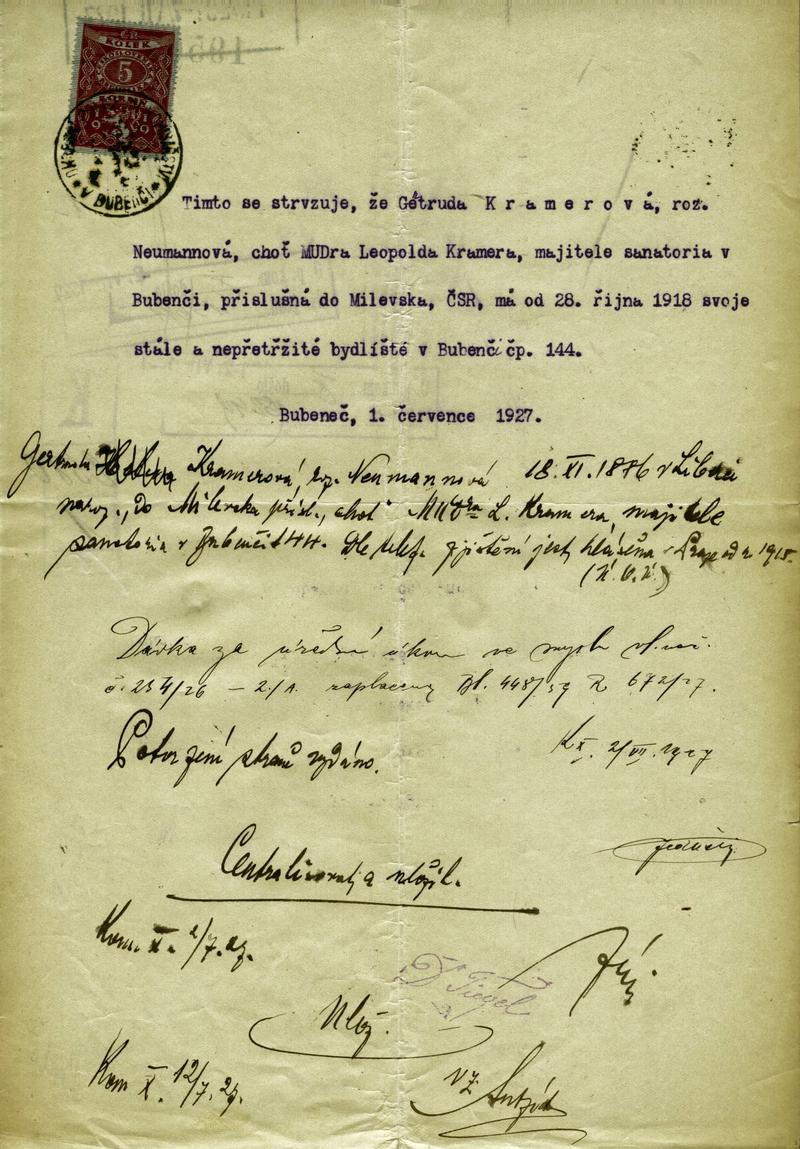 ČR.
KOLEK
5
KORUN
1919
V BUBENČI
Timto se strvzuje, že Gétruda Kramerová, roz.
Neumannová, choť MUDra Leopolda Kramera, majitele sanatoria v
Bubenči, přislušná do Milevska, ČSR, má od 28. řijna 1918 svoje
stále a nepřetržité bydlíště v Bubenči čp. 144.
Bubeneč, 1. července 1927.
Kramerová, roz. Neumannová 18.XI.1876 v Libni
naroz., do Milevska přísl., choť MUDra L. Kramera, majitele
sanatoria v Bubenči 144. Dle telef. zjištění jest hlášena v Praze od r. 1918
Dávka za úřední úkon ve smyslu vl. nař.
č. 234/26 zaplacena 672/27.
Potvrzení straně vydáno.
2/VII. 1927
Centralisovati a uložit.
Kom. X. 2/7. 27.
Dr Fiegel
Ulož.
Kom X. 12/7. 27.
vz